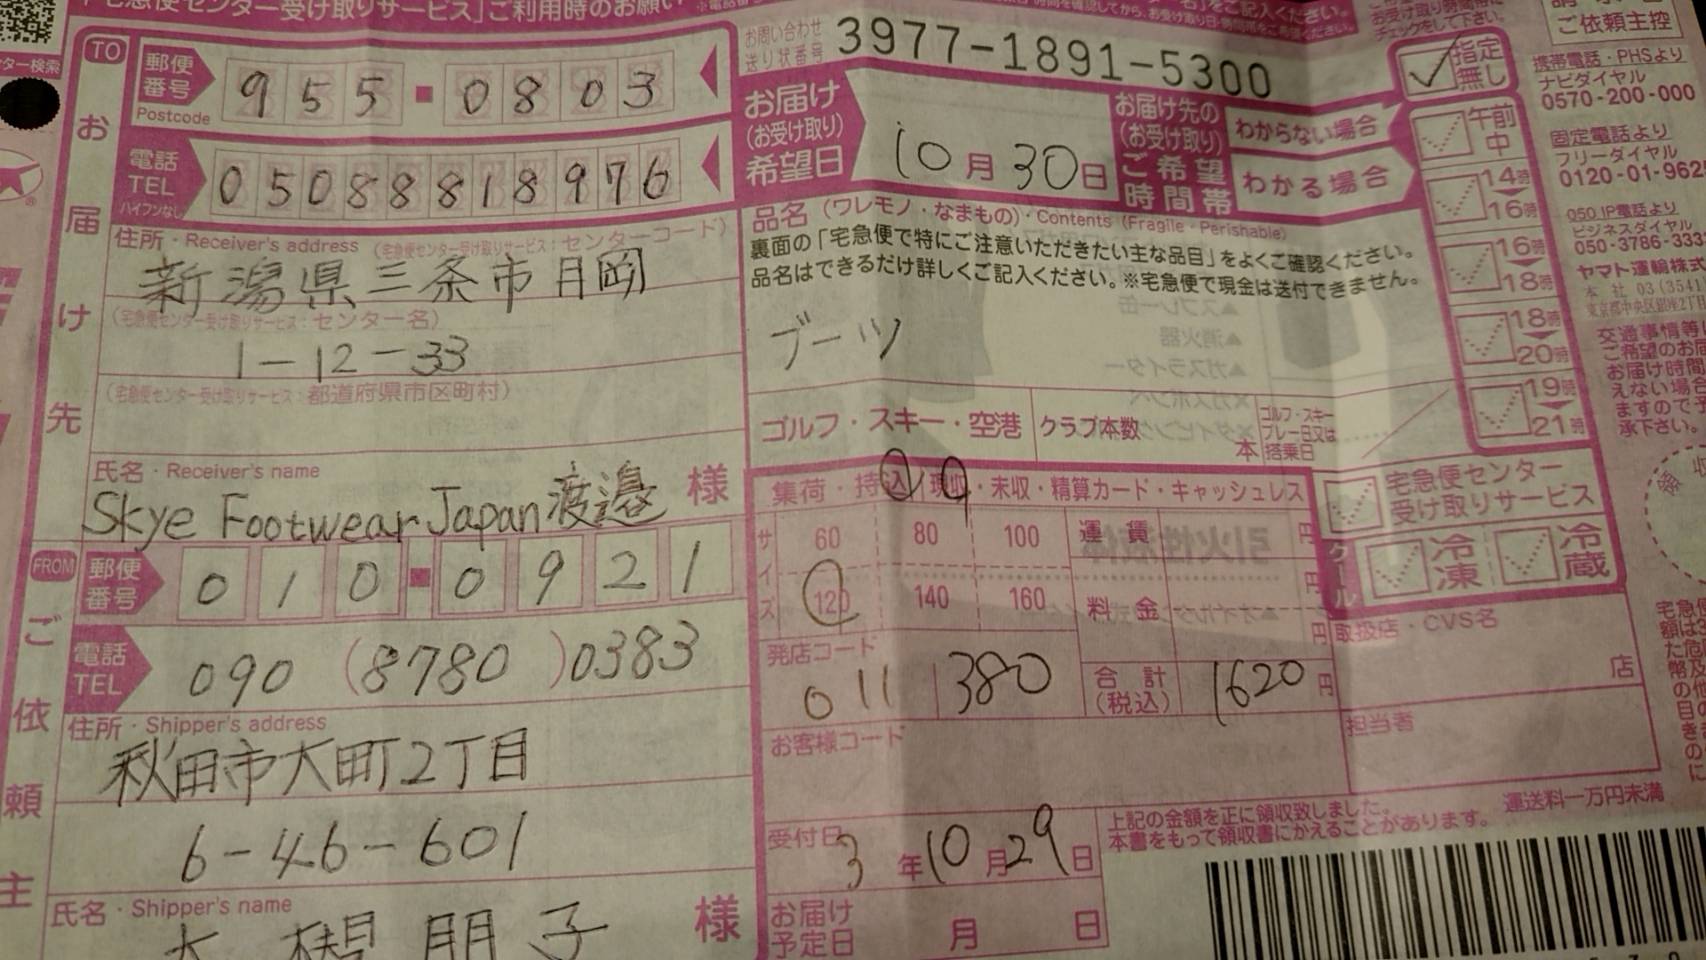 宅急便センター受け取りサービス」ご利用時のお願い
お問い合わせ
送り状番号
3977-1891-5300
ご依頼主控
TO
お届け先
郵便番号
Postcode
955-0803
電話
TEL
ハイフンなし
05088818976
住所・Receiver's address (宅急便センター受け取りサービス:センターコード)
新潟県三条市月岡
(宅急便センター受け取りサービス:センター名)
1-12-33
(宅急便センター受け取りサービス:都道府県市区町村)
氏名・Receiver's name
Skye Footwear Japan 渡邉 様
FROM
ご依頼主
郵便番号
010-0921
電話
TEL
090 (8780)0383
住所・Shipper's address
秋田市大町2丁目
6-46-601
氏名・Shipper's name
朋子 様
お届け
(お受け取り)
希望日
10月30日
お届け先の
(お受け取り)
ご希望
時間帯
わからない場合
わかる場合
指定無し
午前中
14時
16時
16時
18時
18時
20時
19時
21時
品名(ワレモノ・なまもの)・Contents (Fragile・Perishable)
裏面の「宅急便で特にご注意いただきたい主な品目」をよくご確認ください。
品名はできるだけ詳しくご記入ください。※宅急便で現金は送付できません。
ブーツ
ゴルフ・スキー・空港
クラブ本数
本
ゴルフ・スキー
プレー日又は
搭乗日
集荷・持込/現収・未収・精算カード・キャッシュレス
サイズ
60 80 100
120 140 160
運賃 円
料金 円
円
合計
(税込)
1620円
発店コード
011 380
お客様コード
受付日
3年10月29日
お届け
予定日
月 日
宅急便センター
受け取りサービス
クール
冷凍
冷蔵
取扱店・CVS名
店
担当者
上記の金額を正に領収致しました。
本書をもって領収書にかえることがあります。
運送料一万円未満
携帯電話・PHSより
ナビダイヤル
0570-200-000
固定電話より
フリーダイヤル
0120-01-962
050 IP電話より
ビジネスダイヤル
050-3786-333
ヤマト運輸株式